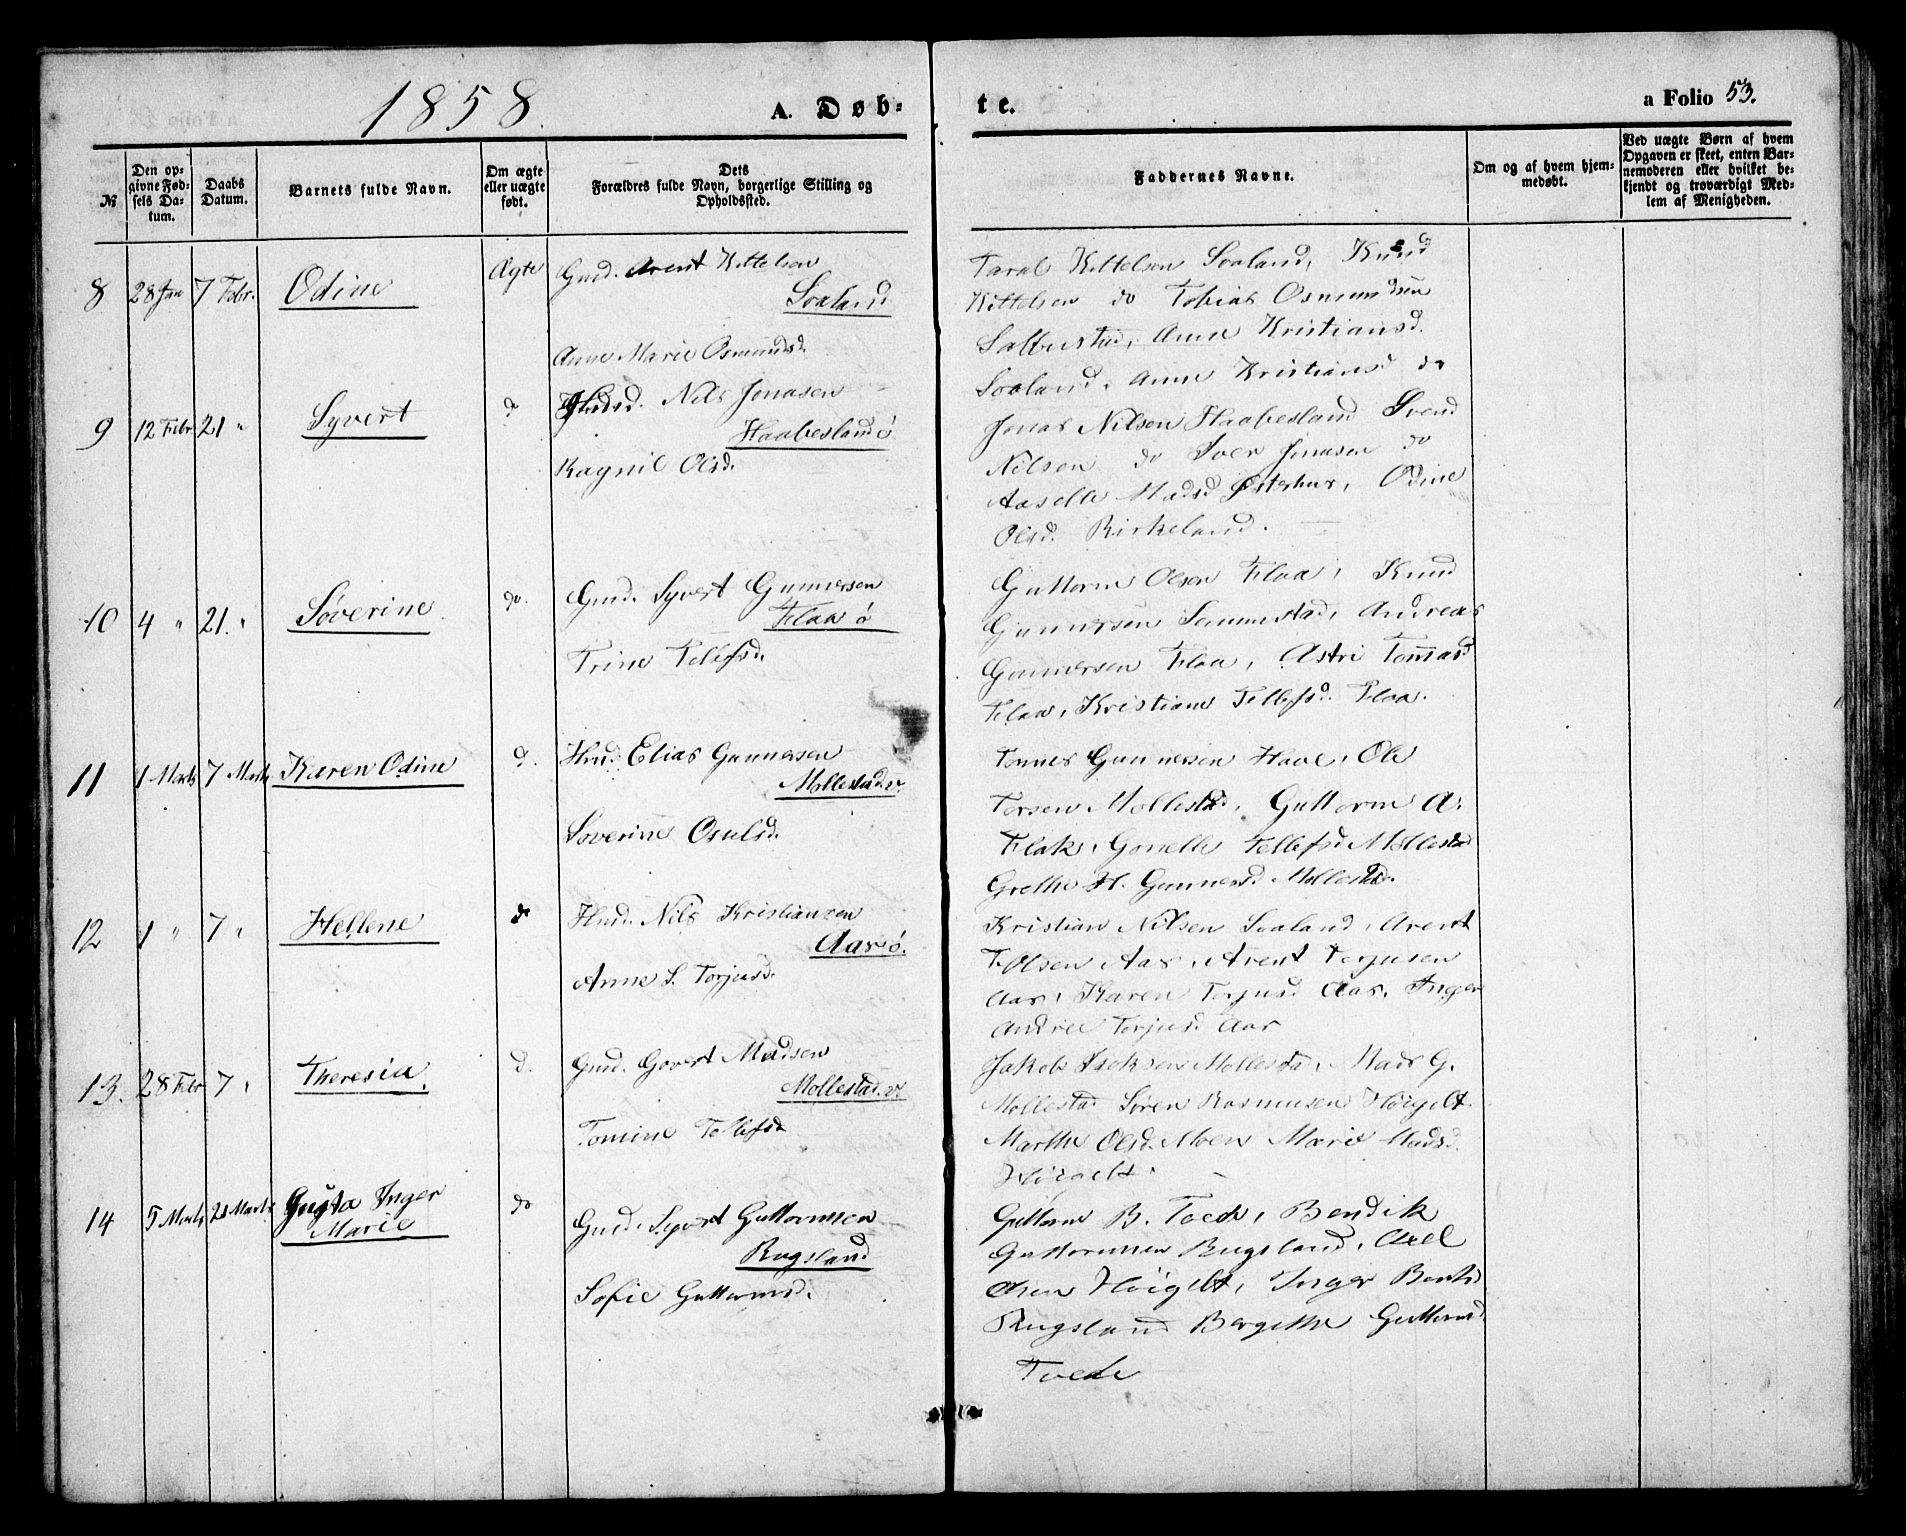 1858.
A. Døb-
te.
a Folio 53.
№
Den op-
givne Fød-
sels Da-
tum.
Daabs
Datum.
Barnets fulde Navn.
Om ægte
eller uægte
født.
Dets
Forældres fulde Navn, borgerlige Stilling og
Opholdssted.
Faddernes Navne.
Om og af hvem hjem-
medøbt.
Ved uægte Børn af hvem
Opgaven er skeet, enten Bar-
nemoderen eller hvilket be-
kjendt og troværdigt Med-
lem af Menigheden.
8 28 Jan 7 Febr. Odine Ægte Gmd. Arent Kittelsen
Soaland
Anne Marie Osmundsd.
Taral Kittelsen Soaland, Knud
Kittelsen do Tobias Osmundsen
Anne Kristiansd.
Soaland, Anne Kristiansd do
9 12 Febr 21 " Syvert d Nils Jonasen
Haabesland ö
Ragnil Olsd.
Jonas Nilsen Haabesland Svend
Nilsen do Iver Jonasen do
Aaselle Madsd Østerhus, Odine
Olsd. Birkeland.
10 4 " 21. " Söverine do. Gmd. Syvert Gunnersen
Flaa ö
Trine Tellefsd.
Guttorm Olsen Flaa, Knud
Gunnersen Andreas
Gunnersen Flaa, Astri Tomasd
Flaa, Kristiane Tellefsd. Flaa.
11 1 Marts 7 Marts Karen Odine d. Hmd. Elias Gunnersen
Mollestad. v.
Soverine Osulsd.
Tonnes Gunnersen Have, Ole
Torsen Mollestad, Guttorm A.
Flak, Gonelle Tellefsd Mollestad
Grethe H. Gunnersd. Mollestad.
12 1 " 7 " Hellene d Hmd. Nils Kristiansen
Aas ö.
Anne S. Torjusd.
Kristian Nilsen Soaland, Arent
T. Olsen Aas, Arent Terjusen
Aas, Karen Torjusd. Aas, Inger
Andree Torjusd. Aas
13. 28 Febr 7 " Theresia. d. Gmd. Govert Madsen
Mollestad. v.
Tomine Tellefsd
Jakob Isaksen Mollestad, Mads G.
Mollestad Sören Rasmusen Höigilt.
Marthe Olsd. Moen Marie Madsd.
Höigilt.
14 5 Marts 21 Marts Gusta Inger
Marie
do Gmd. Syvert Guttormsen
Rugsland
Sofie Guttormsd.
Guttorm B. Tvede, Bendik
Guttormsen Rugsland, Axel
Olsen Höigilt, Inger Bentsd
Rugsland Bergithe Guttormsd
Tvede